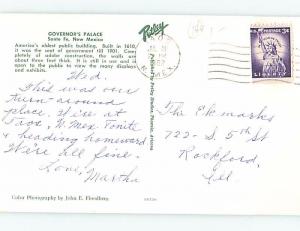 GOVERNOR'S PALACE
Santa Fe, New Mexico
America's oldest public building. Built in 1610,
it was the seat of government till 1901. Com-
pletely of adobe construction, the walls are
about three feet thick. It is still in use and is
open to the public to view the many displays
and exhibits.
Petley
N. MEX.
U.S. POSTAGE
3¢
LIBERTY
Wed.
This was our
turn-around
place. We're at
Taos, N. Mex. Tonite
& heading homeward
We're all fine.
Love, Martha
The Ekmarks
722 - S. 5th St
Rockford,
Ill
Color Photography by John E.